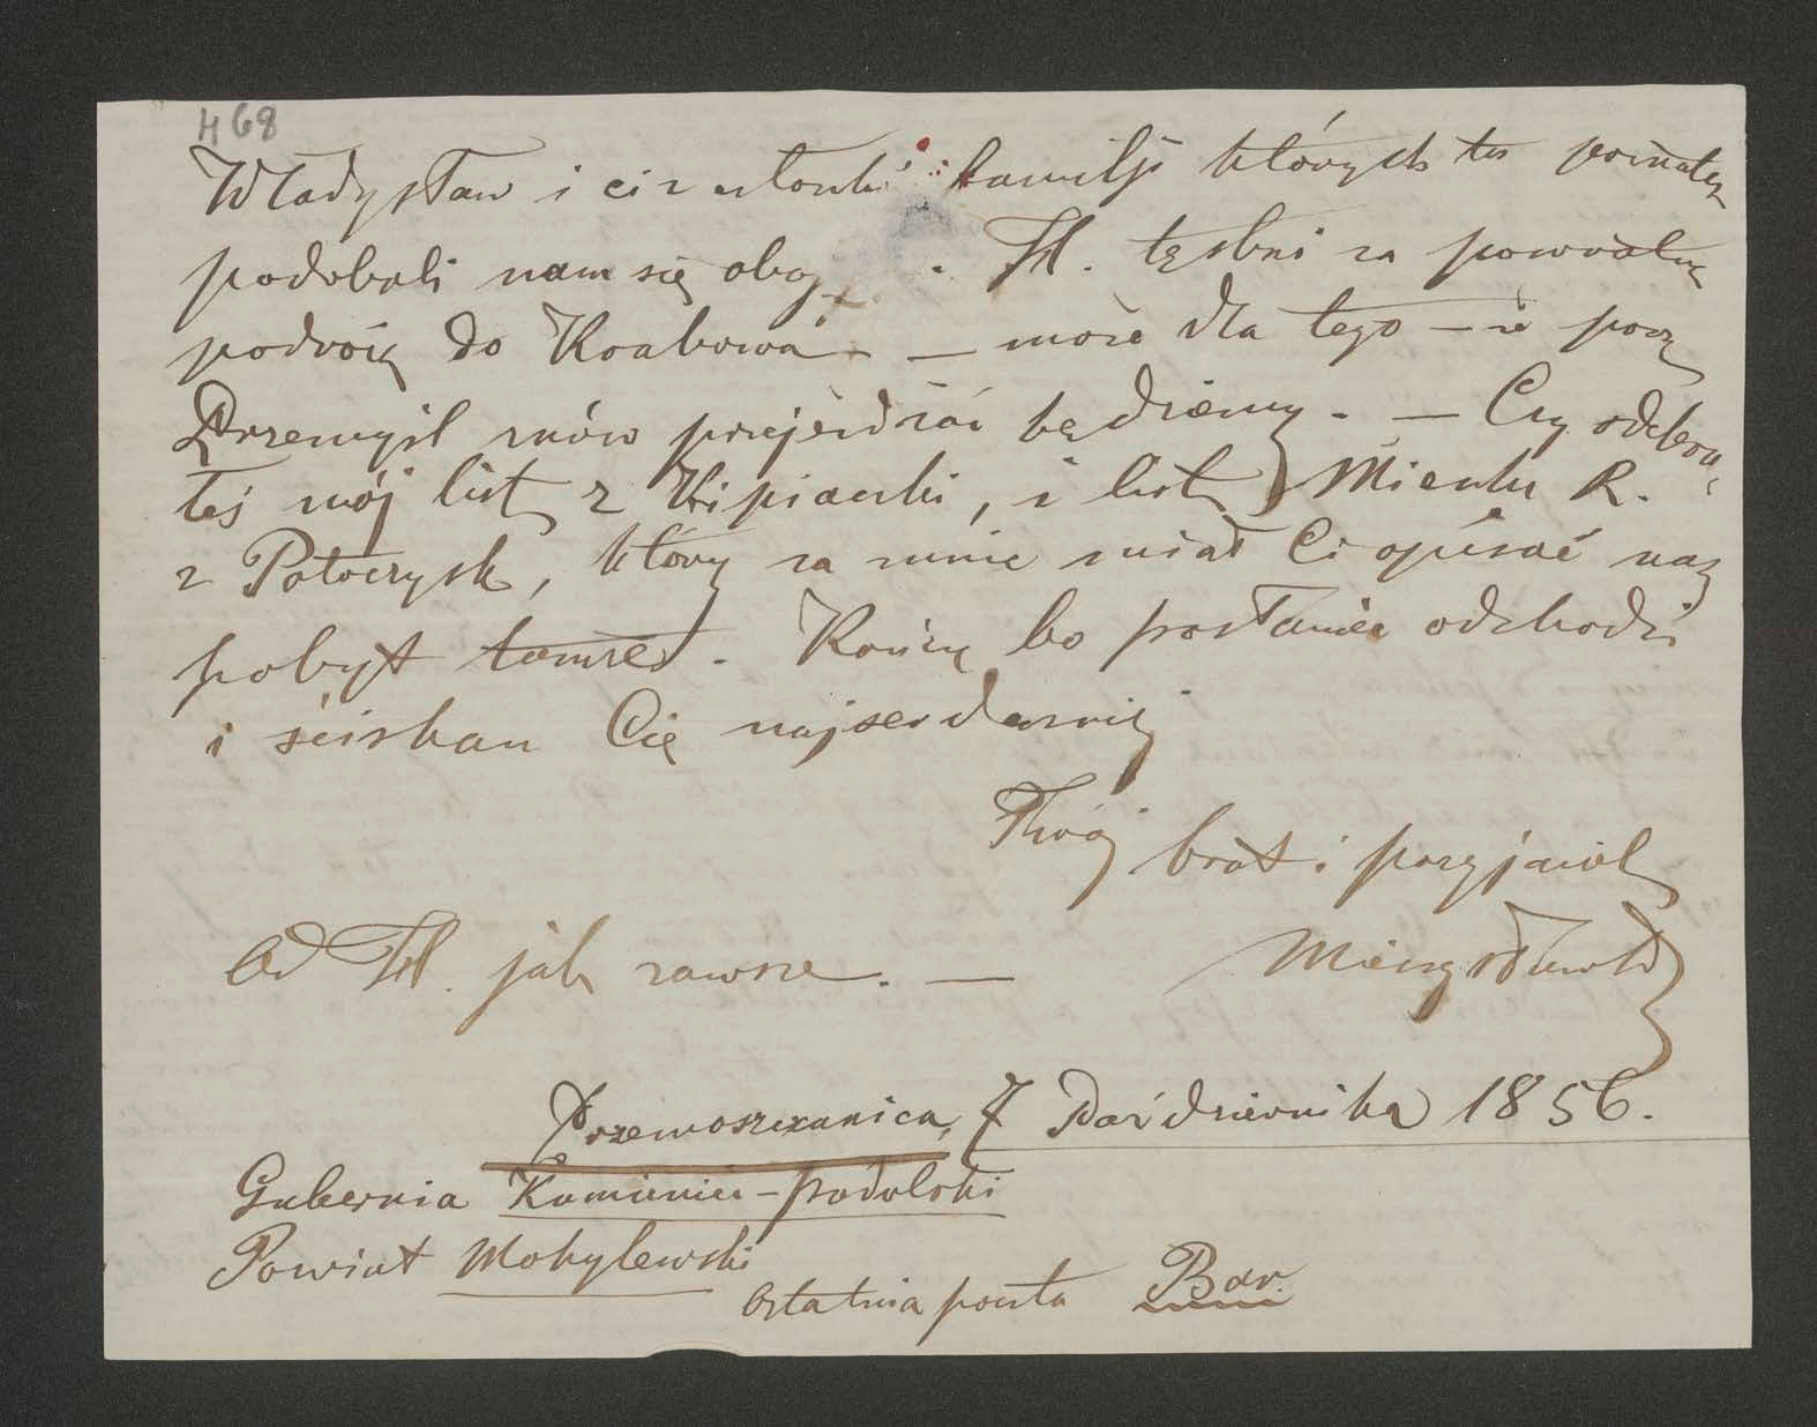 468
Władysław i ci z członków familji których tu poznałeś
podobali nam się oboj . Hl. tęskni za powrotną
podróżą do Krakowa — może dla tego — że przez
Przemyśl znów przejeżdżać będziemy. — Czy odebra-
łeś mój list z Kipiaczki, i list Mieczka R.
z Potoczysk, który za mnie miał Ci opisać nasz
pobyt tamże. Kończę bo posłaniec odchodzi
i ściskam Cię najserdeczniej
Twój brat i przyjaciel
Od Hl. jak zawsze. — Mieczysław
7 Października 1856.
Gubernia Kamieniec-podolski
Powiat Mohylewski
Ostatnia poczta Bar.